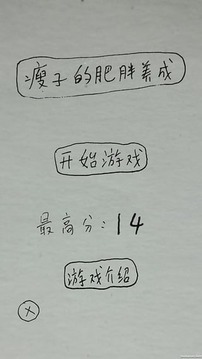 瘦子的肥胖养成
开始游戏
最高分:14
游戏介绍
X